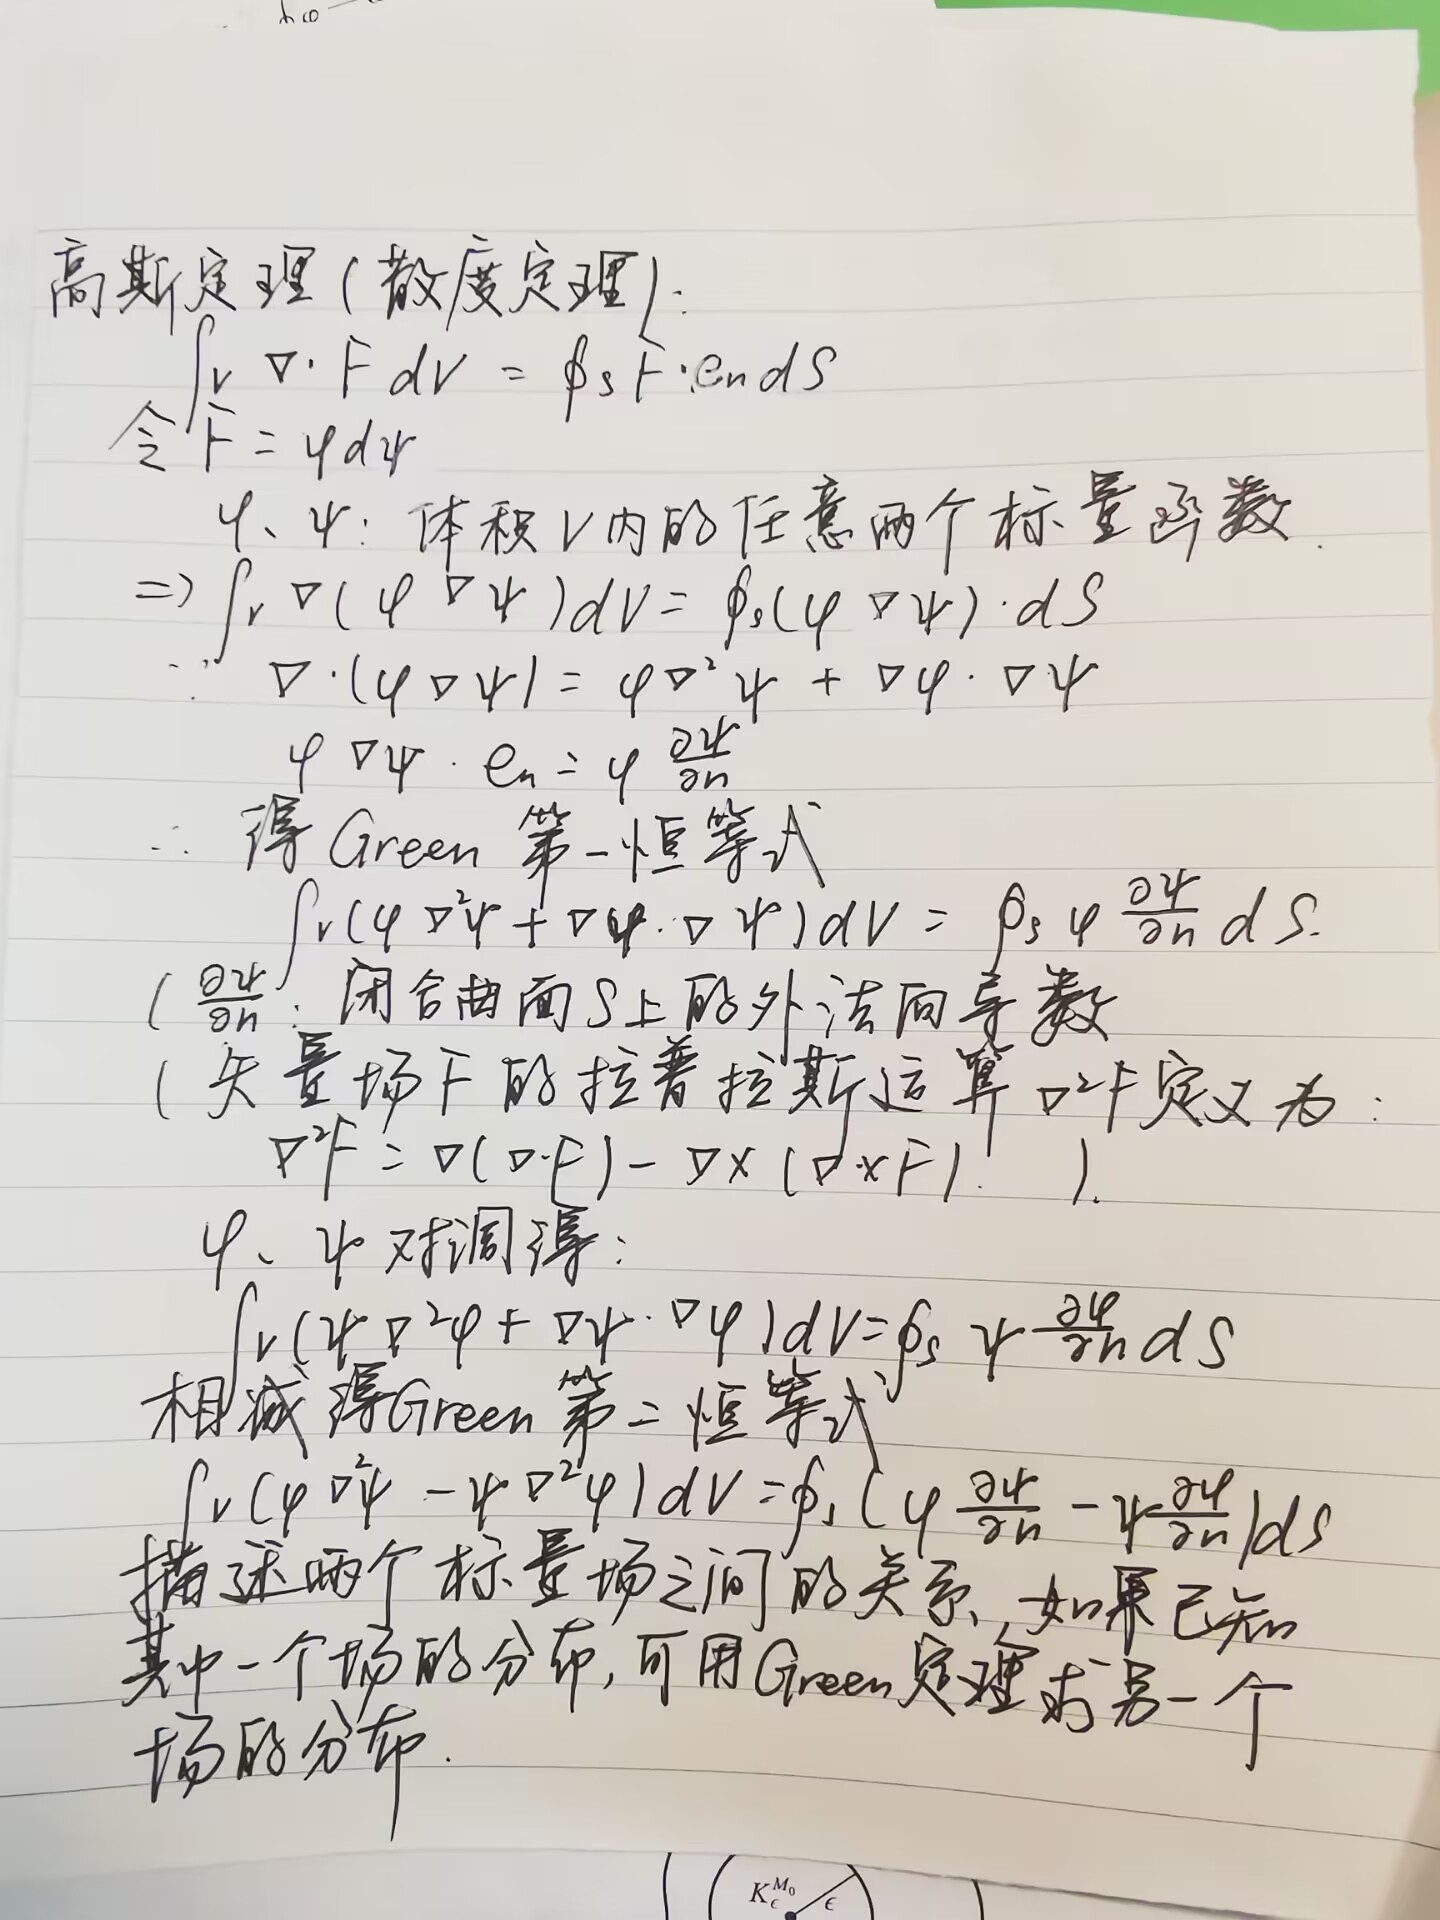 高斯定理(散度定理):
∫v ∇·F dV = ∮s F·en dS
令 F = φdψ
φ、ψ: 体积V内的任意两个标量函数.
=> ∫v ∇(φ∇ψ)dV = ∮s(φ∇ψ)·dS
∵ ∇·(φ∇ψ) = φ∇²ψ + ∇φ·∇ψ
φ∇ψ·en = φ ∂ψ/∂n
∴ 得Green第一恒等式
∫v(φ∇²ψ + ∇φ·∇ψ)dV = ∮s φ ∂ψ/∂n dS.
( ∂ψ/∂n: 闭合曲面S上的外法向导数
( 矢量场F的拉普拉斯运算∇²F定义为:
∇²F = ∇(∇·F) - ∇×(∇×F). ).
φ、ψ对调得:
∫v(ψ∇²φ + ∇ψ·∇φ)dV = ∮s ψ ∂φ/∂n dS
相减得Green第二恒等式
∫v(φ∇²ψ - ψ∇²φ)dV = ∮s(φ ∂ψ/∂n - ψ ∂φ/∂n)dS
描述两个标量场之间的关系, 如果已知
其中一个场的分布, 可用Green定理求另一个
场的分布.
K_ϵ^{M₀} ϵ